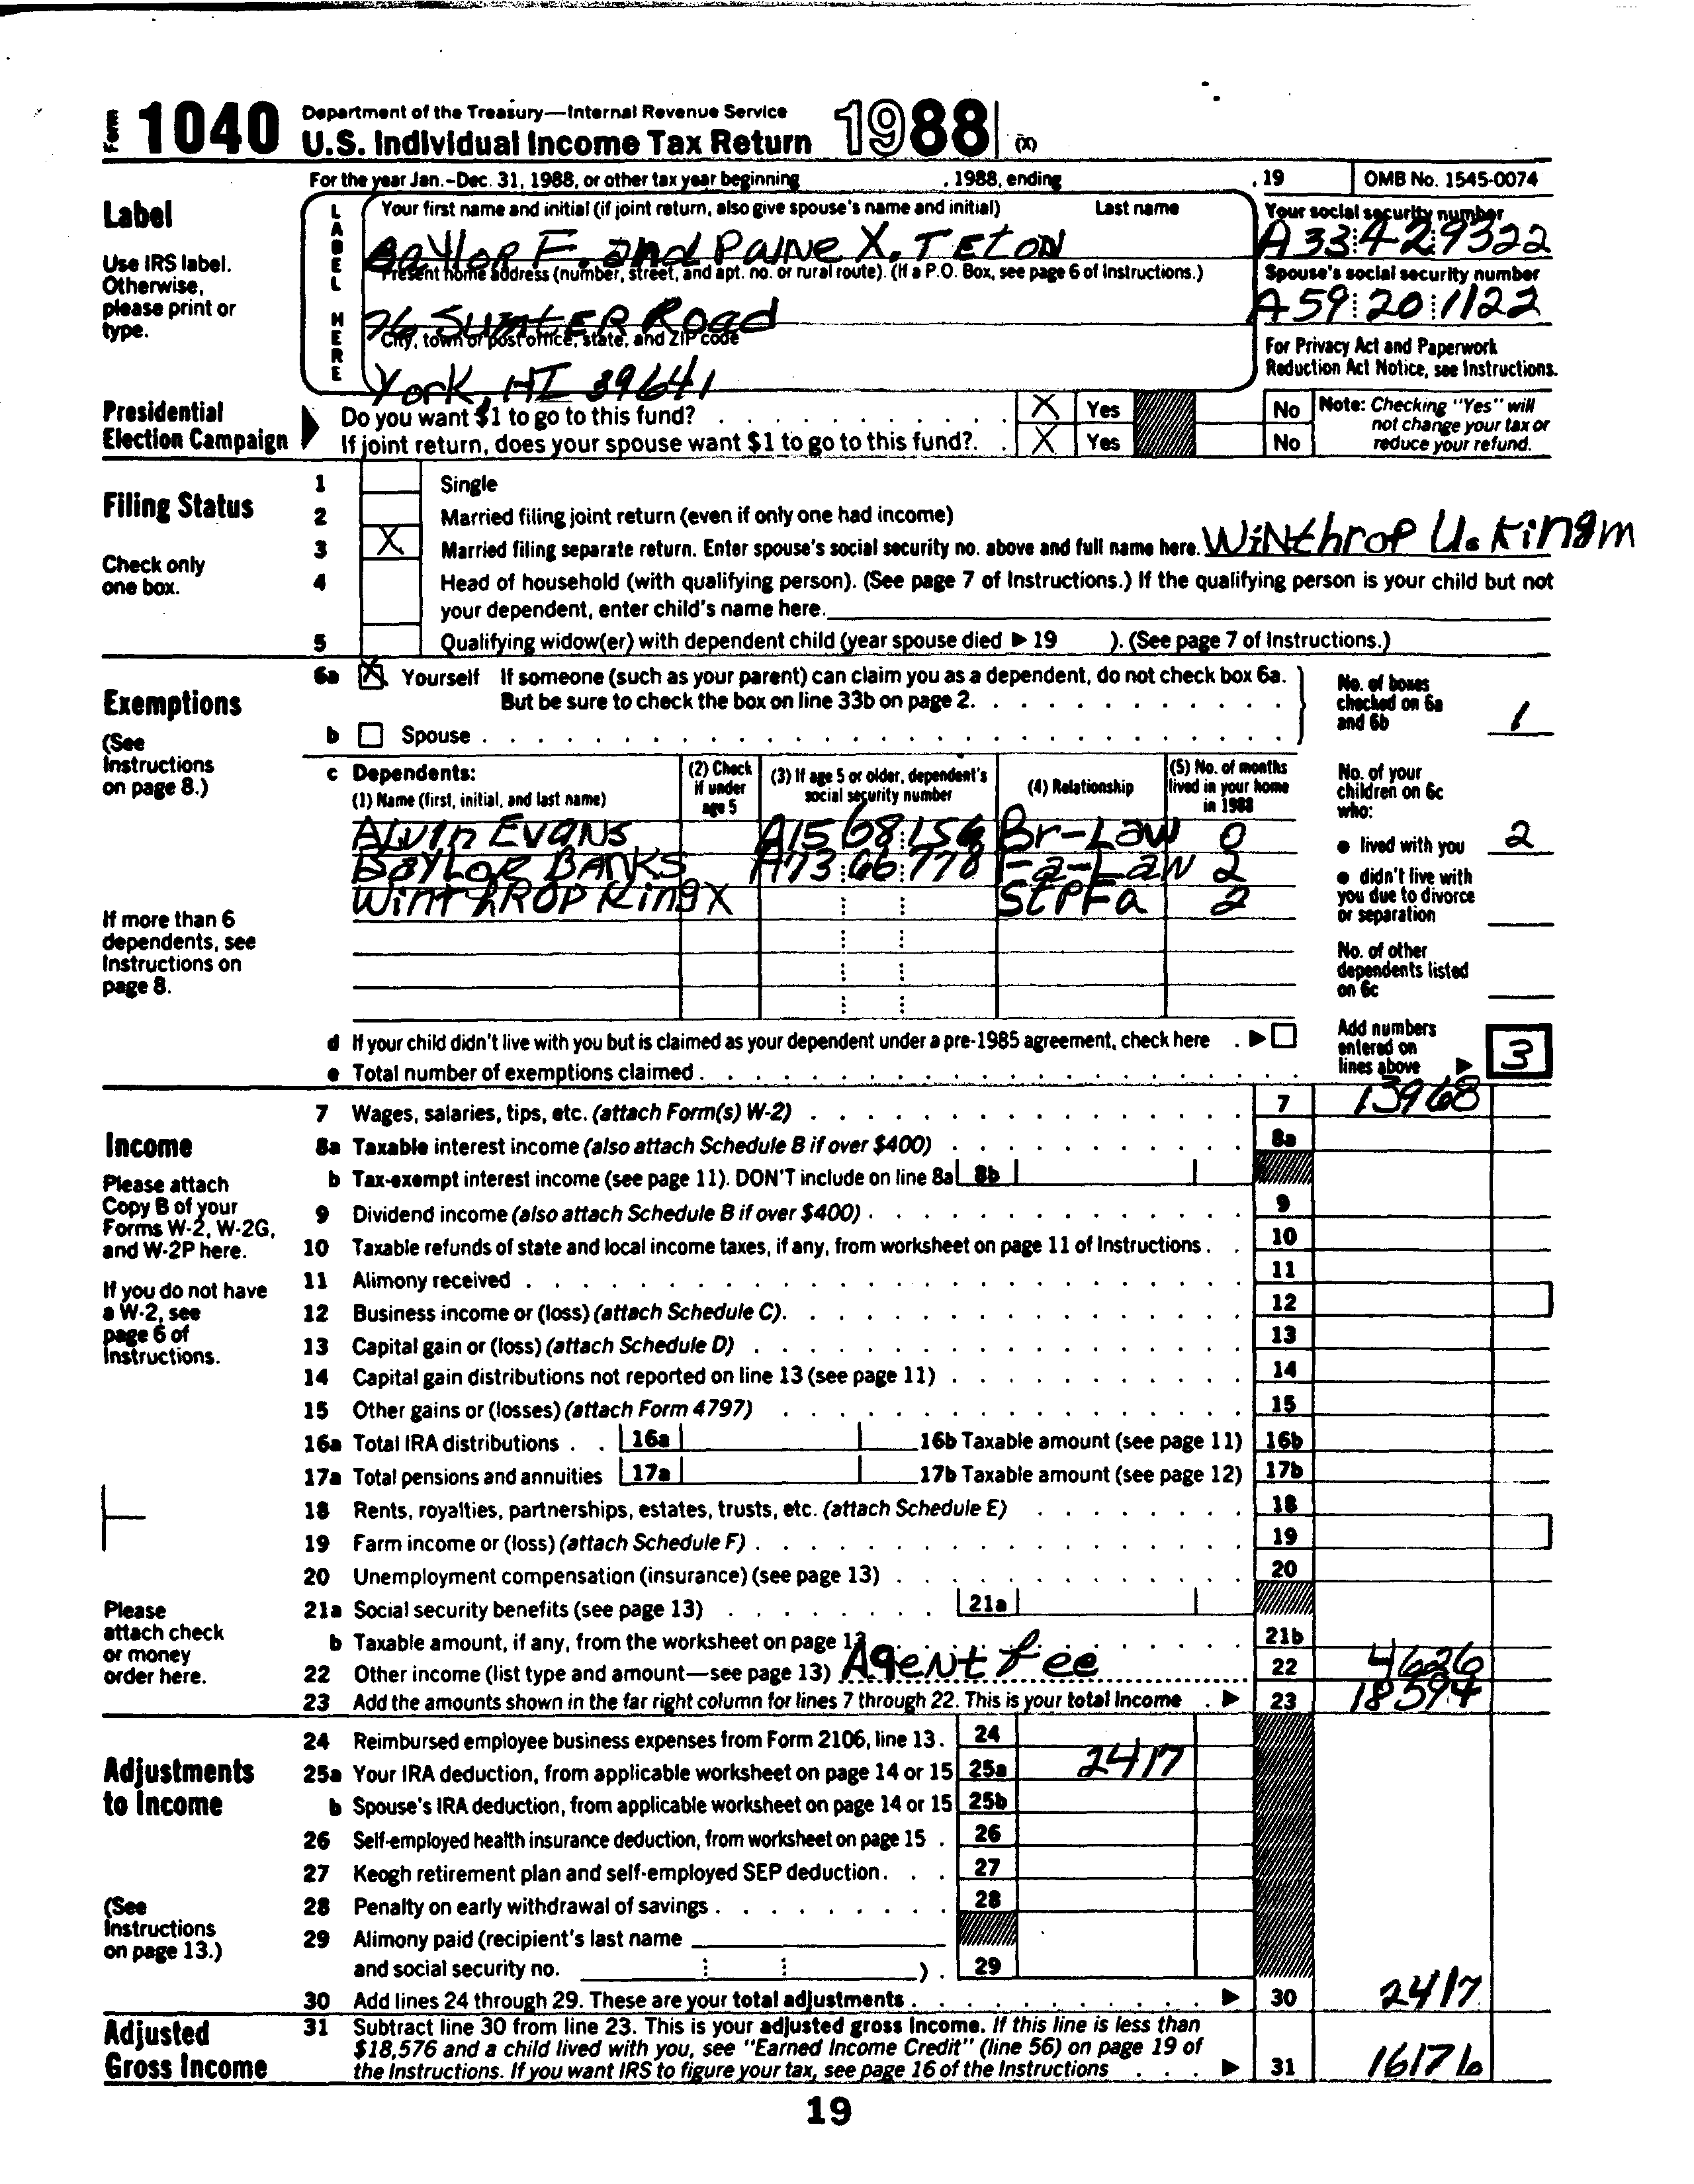 Form 1040 Department of the Treasury—Internal Revenue Service
U.S. Individual Income Tax Return 1988 (X)
For the year Jan.-Dec. 31, 1988, or other tax year beginning , 1988, ending , 19 OMB No. 1545-0074
Label
Use IRS label. Otherwise, please print or type.
LABEL HERE
Your first name and initial (if joint return, also give spouse's name and initial) Last name
Baylor F. and Paine X. Teton
Your social security number
A33 42 9322
Present home address (number, street, and apt. no. or rural route). (If a P.O. Box, see page 6 of Instructions.)
76 Sumter Road
Spouse's social security number
A59 20 1122
City, town or post office, state, and ZIP code
York, HI 39641
For Privacy Act and Paperwork Reduction Act Notice, see Instructions.
Presidential Election Campaign
Do you want $1 to go to this fund? X Yes No
If joint return, does your spouse want $1 to go to this fund? X Yes No
Note: Checking "Yes" will not change your tax or reduce your refund.
Filing Status
Check only one box.
1 Single
2 Married filing joint return (even if only one had income)
3 X Married filing separate return. Enter spouse's social security no. above and full name here. Winthrop U. Kingm
4 Head of household (with qualifying person). (See page 7 of Instructions.) If the qualifying person is your child but not
your dependent, enter child's name here.
5 Qualifying widow(er) with dependent child (year spouse died ▶ 19 ). (See page 7 of Instructions.)
Exemptions
(See Instructions on page 8.)
6a X Yourself If someone (such as your parent) can claim you as a dependent, do not check box 6a.
But be sure to check the box on line 33b on page 2.
b Spouse
No. of boxes checked on 6a and 6b 1
c Dependents:
(1) Name (first, initial, and last name) (2) Check if under age 5 (3) If age 5 or older, dependent's social security number (4) Relationship (5) No. of months lived in your home in 1988
Alvin Evans A15 68 156 Br-Law 0
Baylor Banks A73 66 778 Fa-Law 2
Winthrop King X StPFa 2
If more than 6 dependents, see Instructions on page 8.
No. of your children on 6c who:
● lived with you 2
● didn't live with you due to divorce or separation
No. of other dependents listed on 6c
d If your child didn't live with you but is claimed as your dependent under a pre-1985 agreement, check here ▶
e Total number of exemptions claimed
Add numbers entered on lines above ▶ 3
Income
Please attach Copy B of your Forms W-2, W-2G, and W-2P here.
If you do not have a W-2, see page 6 of Instructions.
Please attach check or money order here.
7 Wages, salaries, tips, etc. (attach Form(s) W-2) 7 13968
8a Taxable interest income (also attach Schedule B if over $400) 8a
b Tax-exempt interest income (see page 11). DON'T include on line 8a 8b
9 Dividend income (also attach Schedule B if over $400) 9
10 Taxable refunds of state and local income taxes, if any, from worksheet on page 11 of Instructions 10
11 Alimony received 11
12 Business income or (loss) (attach Schedule C) 12
13 Capital gain or (loss) (attach Schedule D) 13
14 Capital gain distributions not reported on line 13 (see page 11) 14
15 Other gains or (losses) (attach Form 4797) 15
16a Total IRA distributions 16a 16b Taxable amount (see page 11) 16b
17a Total pensions and annuities 17a 17b Taxable amount (see page 12) 17b
18 Rents, royalties, partnerships, estates, trusts, etc. (attach Schedule E) 18
19 Farm income or (loss) (attach Schedule F) 19
20 Unemployment compensation (insurance) (see page 13) 20
21a Social security benefits (see page 13) 21a
b Taxable amount, if any, from the worksheet on page 13 21b
22 Other income (list type and amount—see page 13) Agent fee 22 4626
23 Add the amounts shown in the far right column for lines 7 through 22. This is your total income ▶ 23 18594
Adjustments to Income
(See Instructions on page 13.)
24 Reimbursed employee business expenses from Form 2106, line 13. 24
25a Your IRA deduction, from applicable worksheet on page 14 or 15 25a 2417
b Spouse's IRA deduction, from applicable worksheet on page 14 or 15 25b
26 Self-employed health insurance deduction, from worksheet on page 15 26
27 Keogh retirement plan and self-employed SEP deduction 27
28 Penalty on early withdrawal of savings 28
29 Alimony paid (recipient's last name
and social security no. ) 29
30 Add lines 24 through 29. These are your total adjustments ▶ 30 2417
Adjusted Gross Income
31 Subtract line 30 from line 23. This is your adjusted gross income. If this line is less than
$18,576 and a child lived with you, see "Earned Income Credit" (line 56) on page 19 of
the Instructions. If you want IRS to figure your tax, see page 16 of the Instructions ▶ 31 16176
19